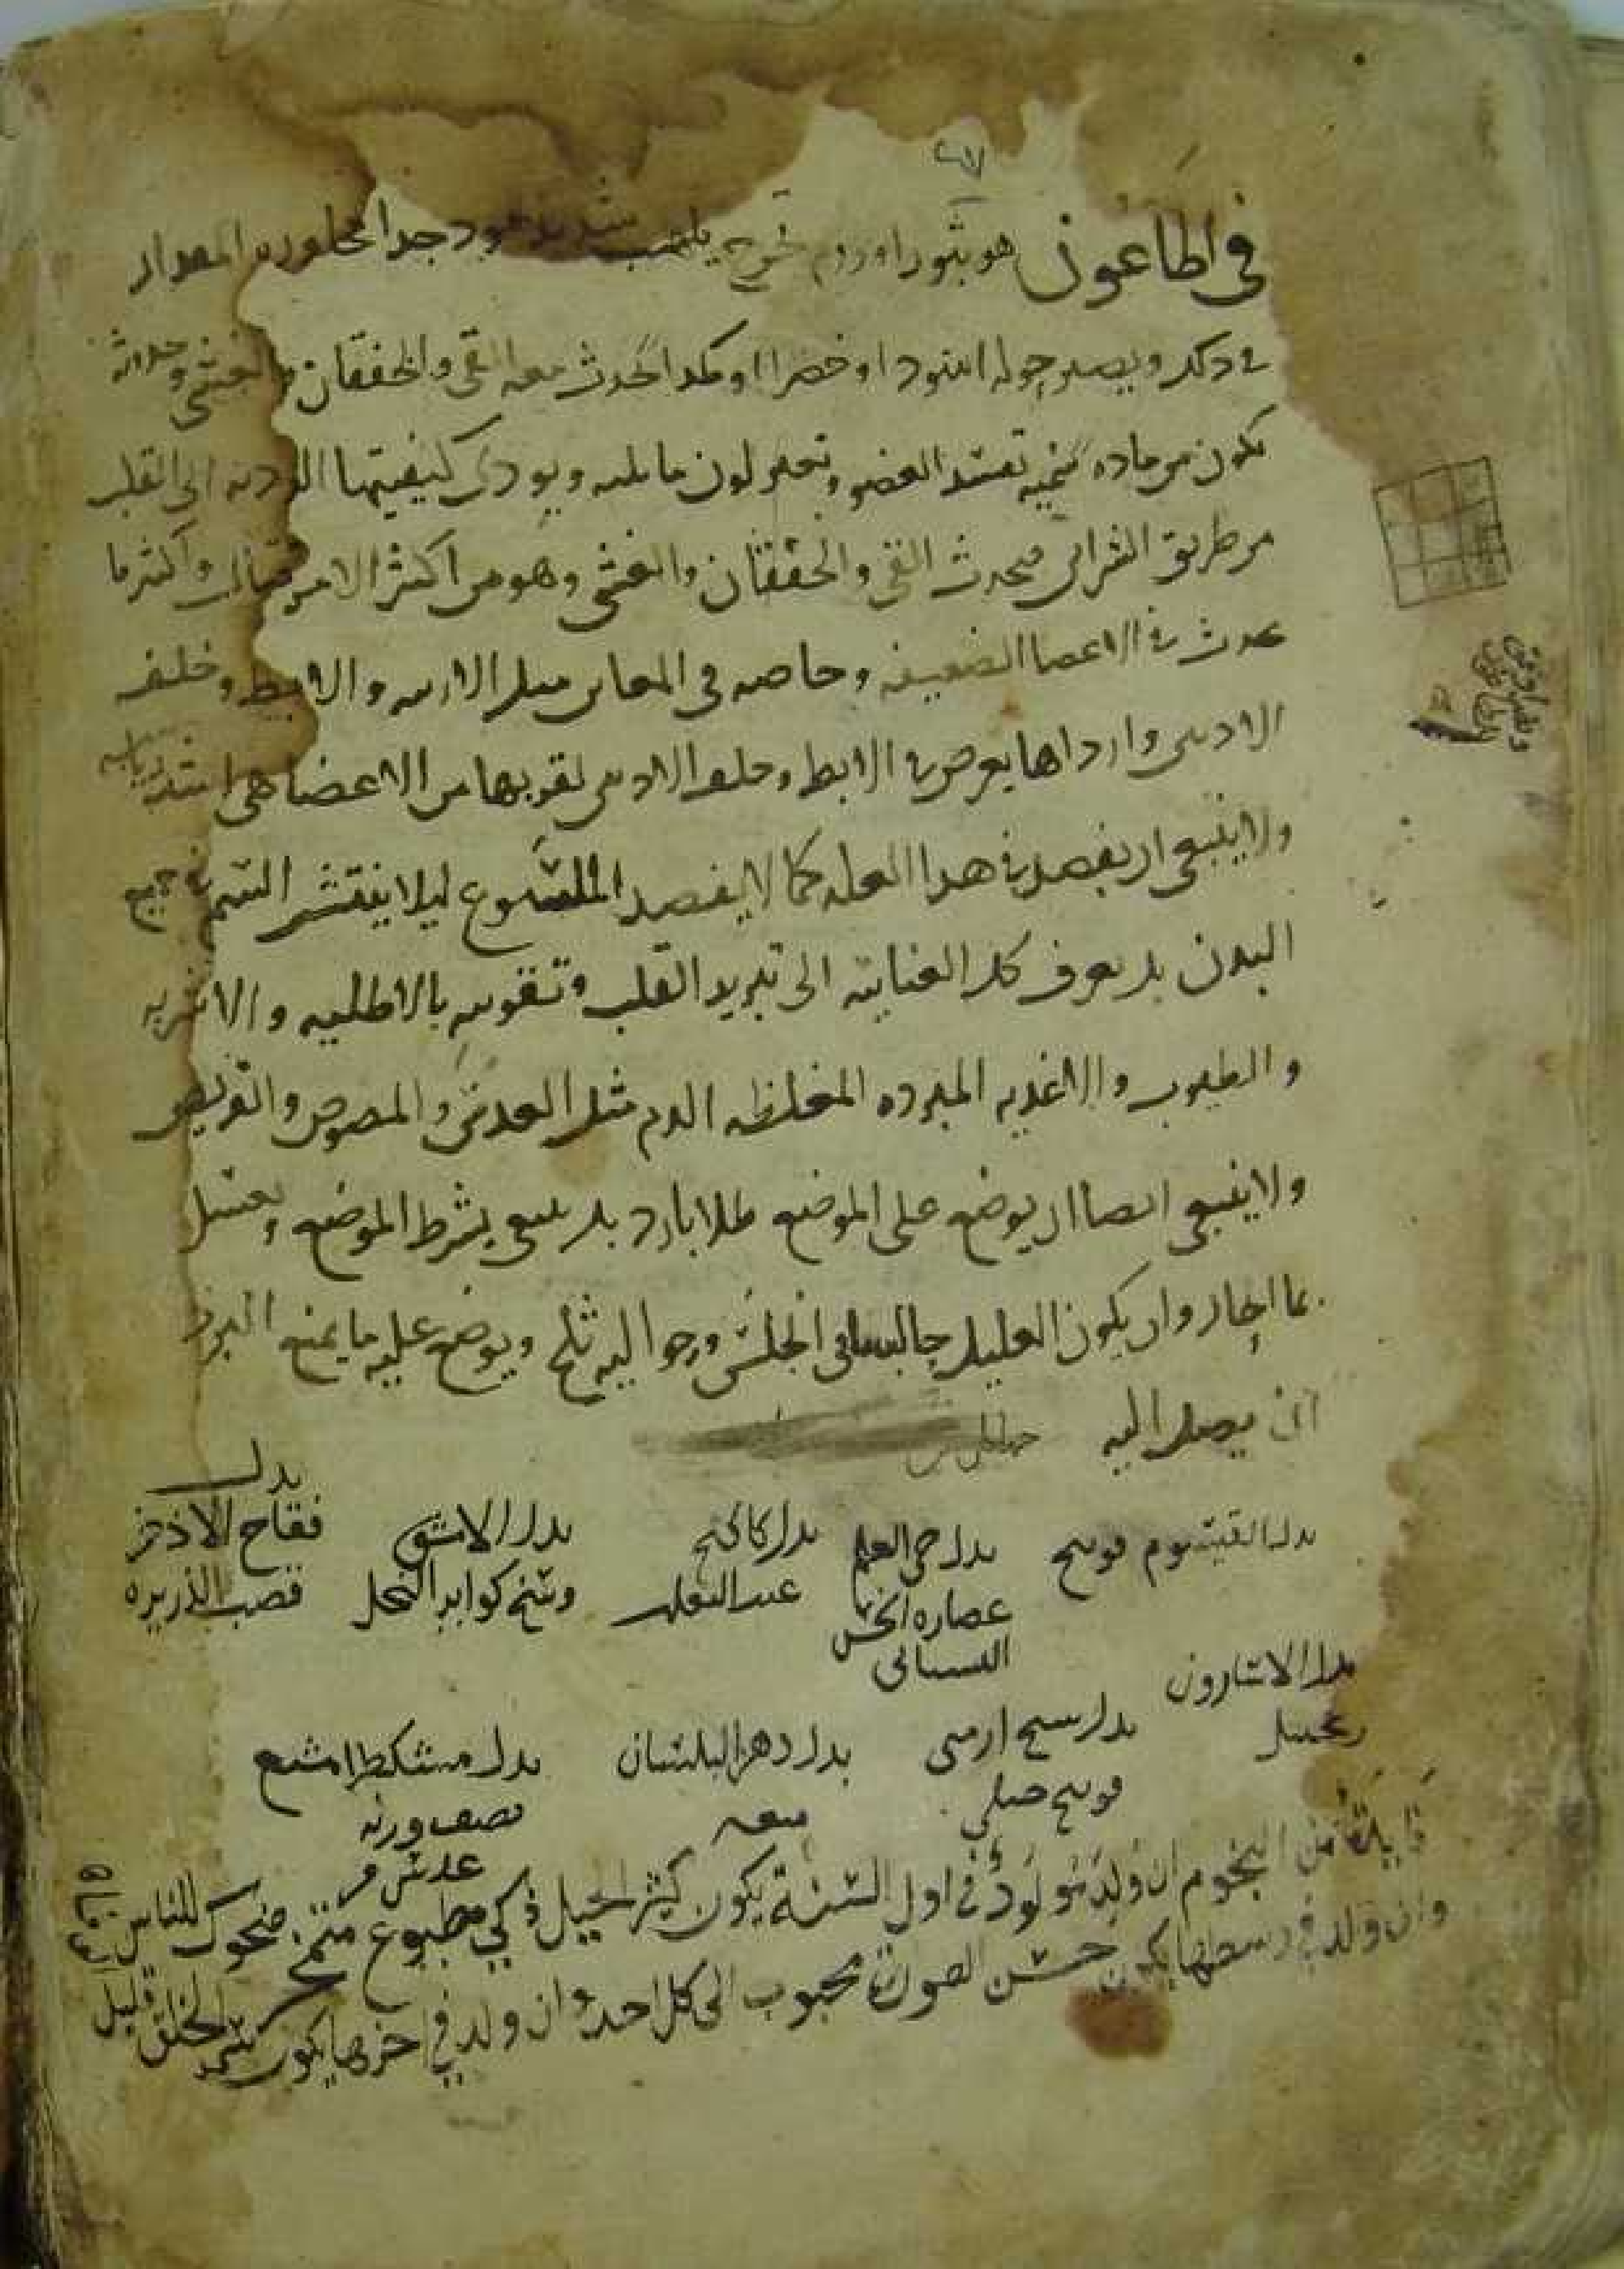 في الطاعون هو بثور او ورم يخرج بلهيب شديد جدا المقدار
في ذلك ويصير حوله اسود او اخضر او كمدا يحدث معه القي والخفقان والغشي وحدوثه
تكون من ماده سميه تفسد العضو وتغير لون ما يليه ويودي كيفيتها الرديه الى القلب
من طريق الشرايين فيحدث القي والخفقان والغشي وهو من اكثر الامر قتال واكثر ما
يحدث في الاعضا الضعيفه وخاصه في المغابن مثل الاربيه والابط وخلف
الاذنين وارداها يعرض في الابط وخلف الاذنين لقربها من الاعضا هي اشد رياسه
ولا ينبغي ان يفصد في هذا العله كما لا يفصد الملسوع ليلا ينتشر السم في جميع
البدن بل يصرف كل العنايه الى تبريد القلب وتقويته بالاطليه والاشربه
والطيوب والاغذيه المبرده المغلظه الدم مثل العدس والمصوص والقريص
ولا ينبغي ايضا ان يوضع على الموضع طلا بارد بل ينبغي يشرط الموضع ويغسل
بما الحار وان يكون العليل جالسا في الخيش وحواليه ثلج ويوضع عليه ما يمنع البرد
ان يصل اليه
بدل القيسوم قوسح بدل حي العلم بدل كاكنج بدل الاشق بدل
عصاره الخس عنب الثعلب وسخ كواير النحل فقاح الاذخر
البستاني قصب الذريره
بدل الاسارون بدل شيح ارمني بدل دهن البلسان بدل مشكطرامشيع
زنجبيل قوسح جبلي نصف وزنه
عدس مر
فايدة من النجوم ان ولد مولود في اول السنة يكون كثير الحيل ذكي مطبوع ضحوك للناس
وان ولد في وسطها يكون حسن الصورة محبوب الى كل احد وان ولد في اخرها يكون الخلق قليل